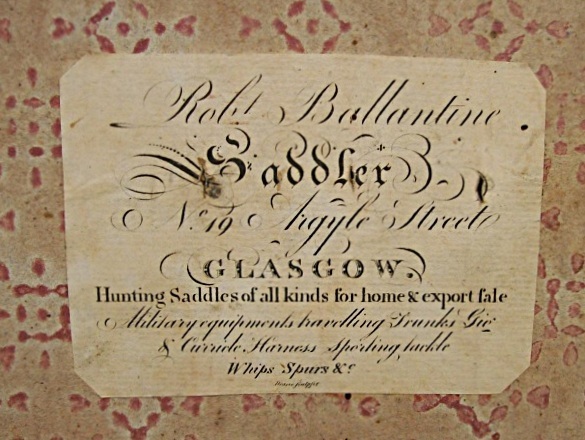 Robt Ballantine
Saddler
No 19 Argyle Street
GLASGOW.
Hunting Saddles of all kinds for home & export ſale
Military equipments travelling Trunks Gig
& Curricle Harness Sporting tackle
Whips Spurs &c
sculpsit